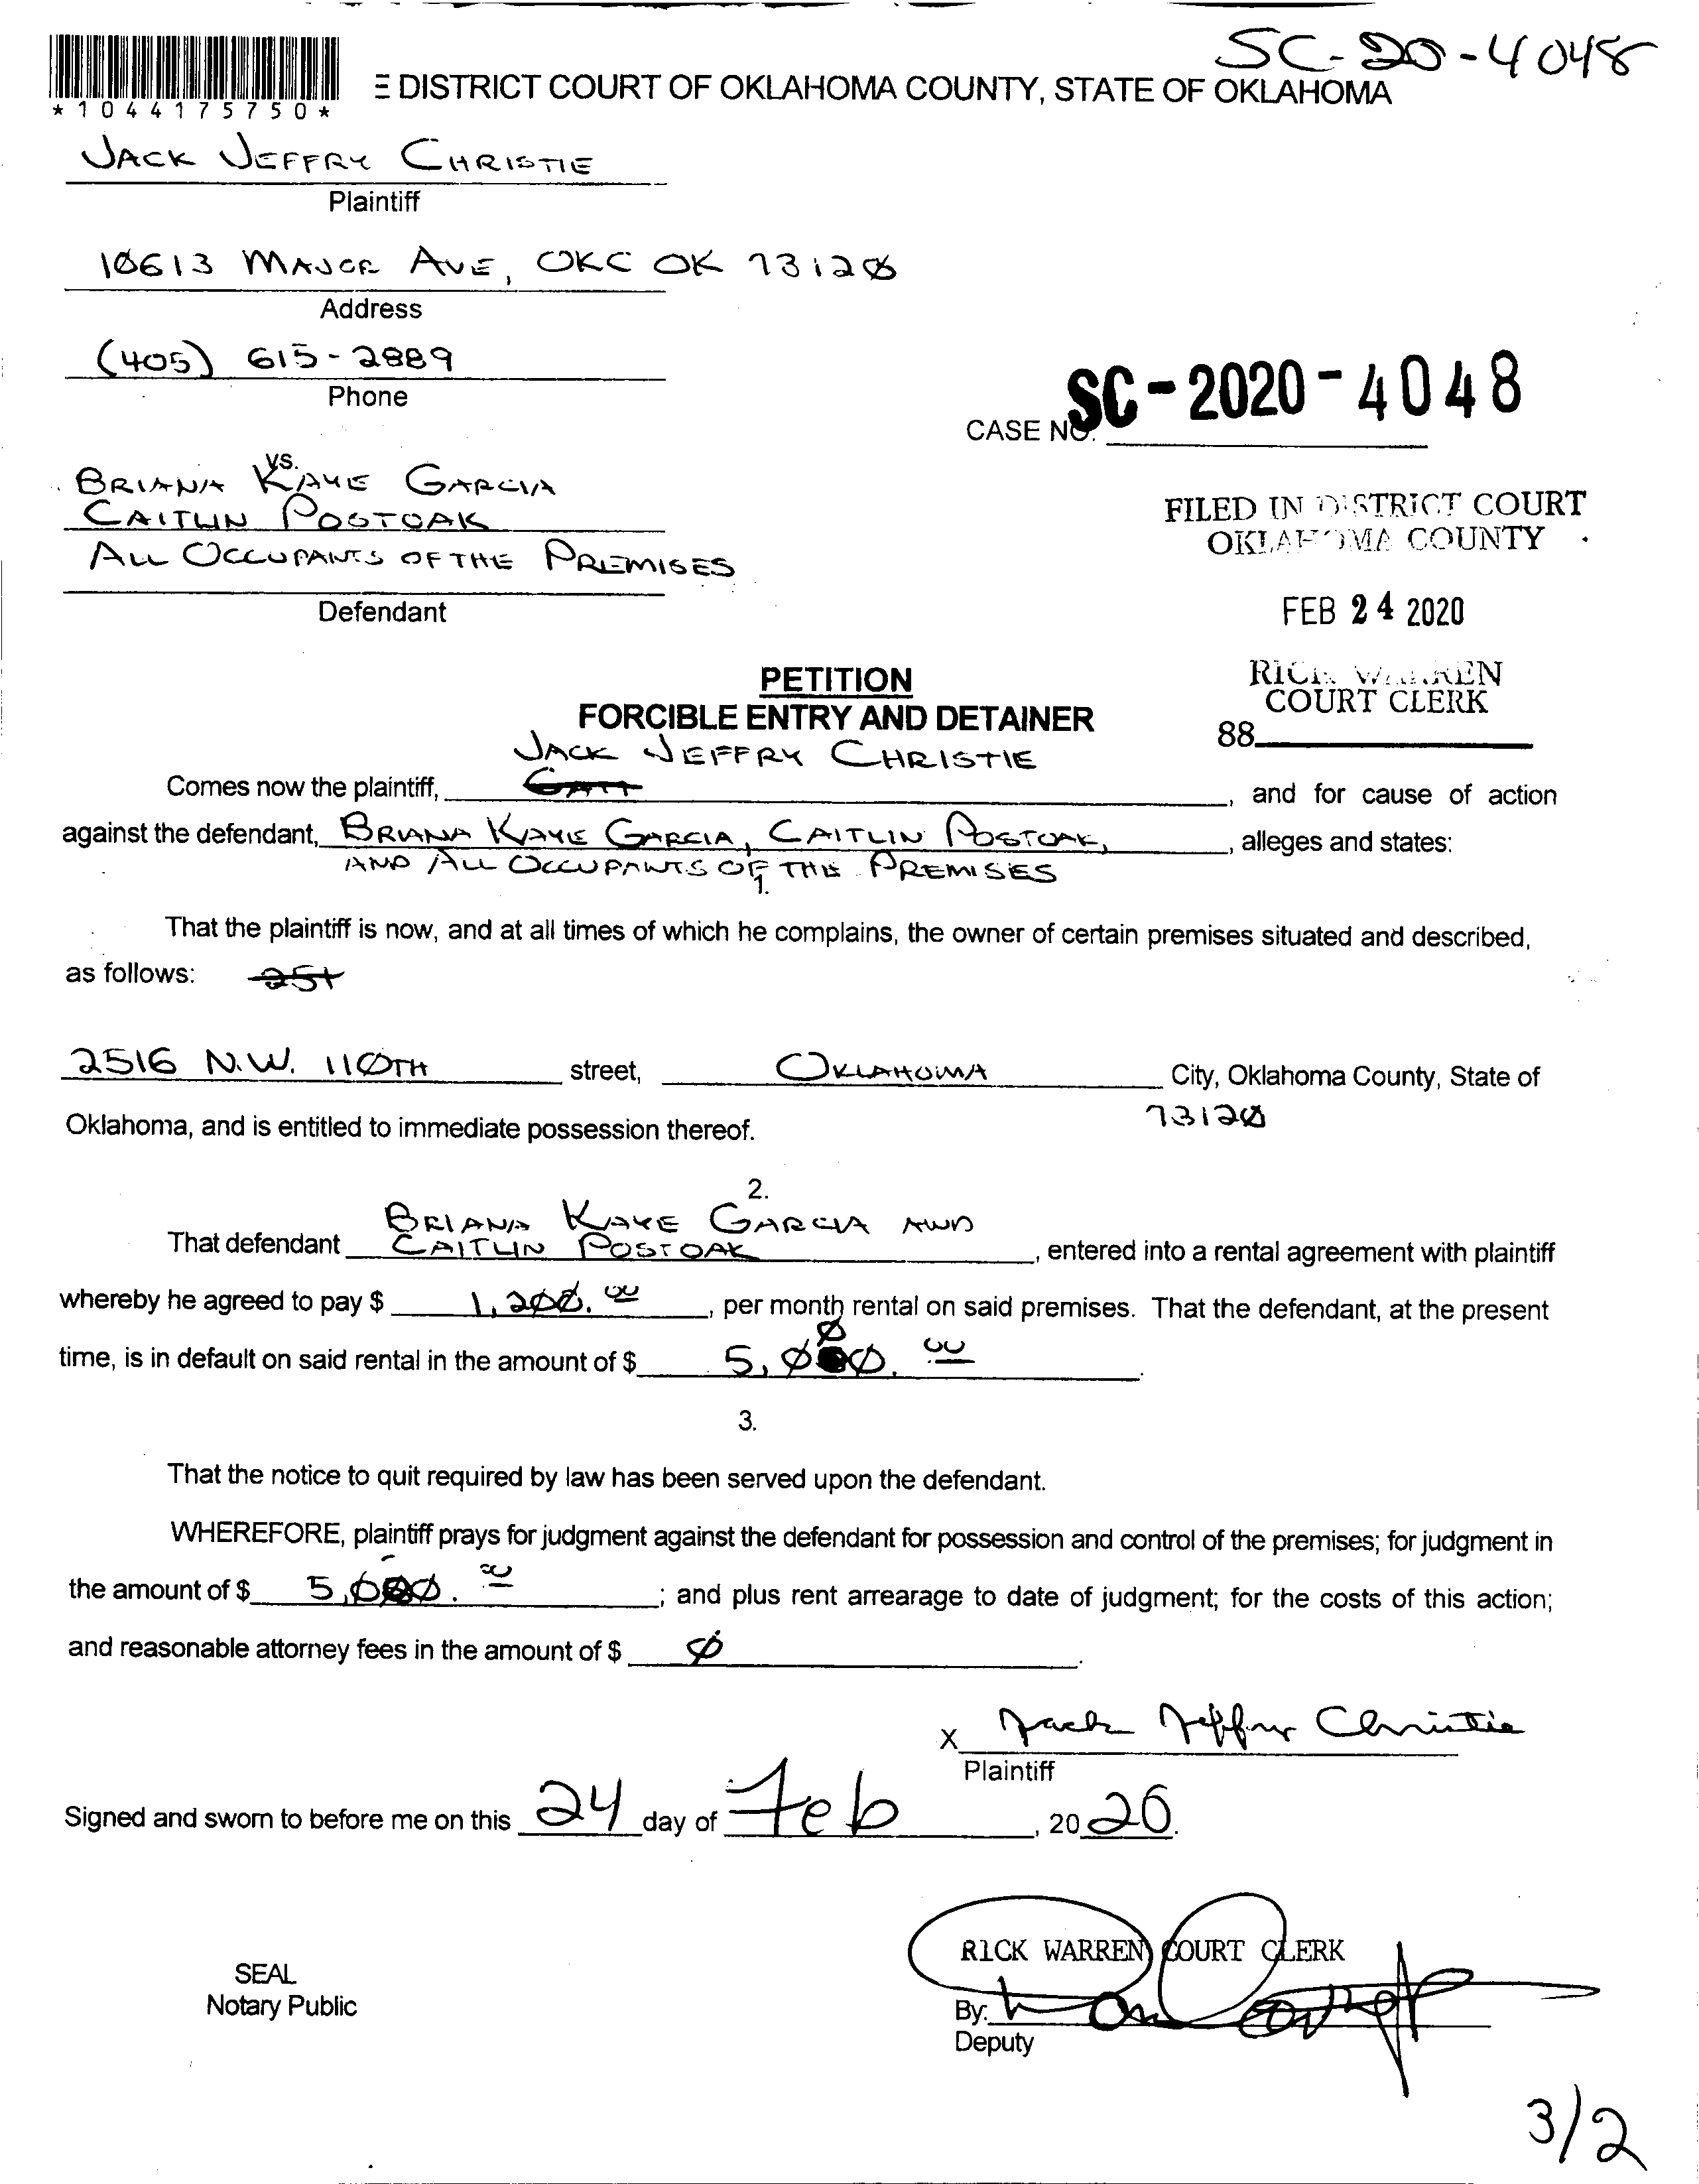 SC-20-4048
E DISTRICT COURT OF OKLAHOMA COUNTY, STATE OF OKLAHOMA
*1044175750*
JACK JEFFRY CHRISTIE
Plaintiff
10613 MAJOR AVE, OKC OK 73120
Address
(405) 615-2889
Phone
CASE NO. SC-2020-4048
vs.
BRIANA KAYE GARCIA
CAITLIN POSTOAK
ALL OCCUPANTS OF THE PREMISES
Defendant
FILED IN DISTRICT COURT
OKLAHOMA COUNTY
FEB 24 2020
RICK WARREN
COURT CLERK
88
PETITION
FORCIBLE ENTRY AND DETAINER
JACK JEFFRY CHRISTIE
Comes now the plaintiff, , and for cause of action
against the defendant, BRIANA KAYE GARCIA, CAITLIN POSTOAK, , alleges and states:
AND ALL OCCUPANTS OF THE PREMISES
1.
That the plaintiff is now, and at all times of which he complains, the owner of certain premises situated and described,
as follows: 25t
2516 N.W. 110TH street, OKLAHOMA City, Oklahoma County, State of
73120
Oklahoma, and is entitled to immediate possession thereof.
2.
BRIANA KAYE GARCIA AND
That defendant CAITLIN POSTOAK , entered into a rental agreement with plaintiff
whereby he agreed to pay $ 1,200.00 , per month rental on said premises. That the defendant, at the present
time, is in default on said rental in the amount of $ 5,000.00 .
3.
That the notice to quit required by law has been served upon the defendant.
WHEREFORE, plaintiff prays for judgment against the defendant for possession and control of the premises; for judgment in
the amount of $ 5,000.00 ; and plus rent arrearage to date of judgment; for the costs of this action;
and reasonable attorney fees in the amount of $ 0 .
X Jack Jeffry Christie
Plaintiff
Signed and sworn to before me on this 24 day of Feb , 20 20.
RICK WARREN COURT CLERK
SEAL
Notary Public
By:
Deputy
3/2